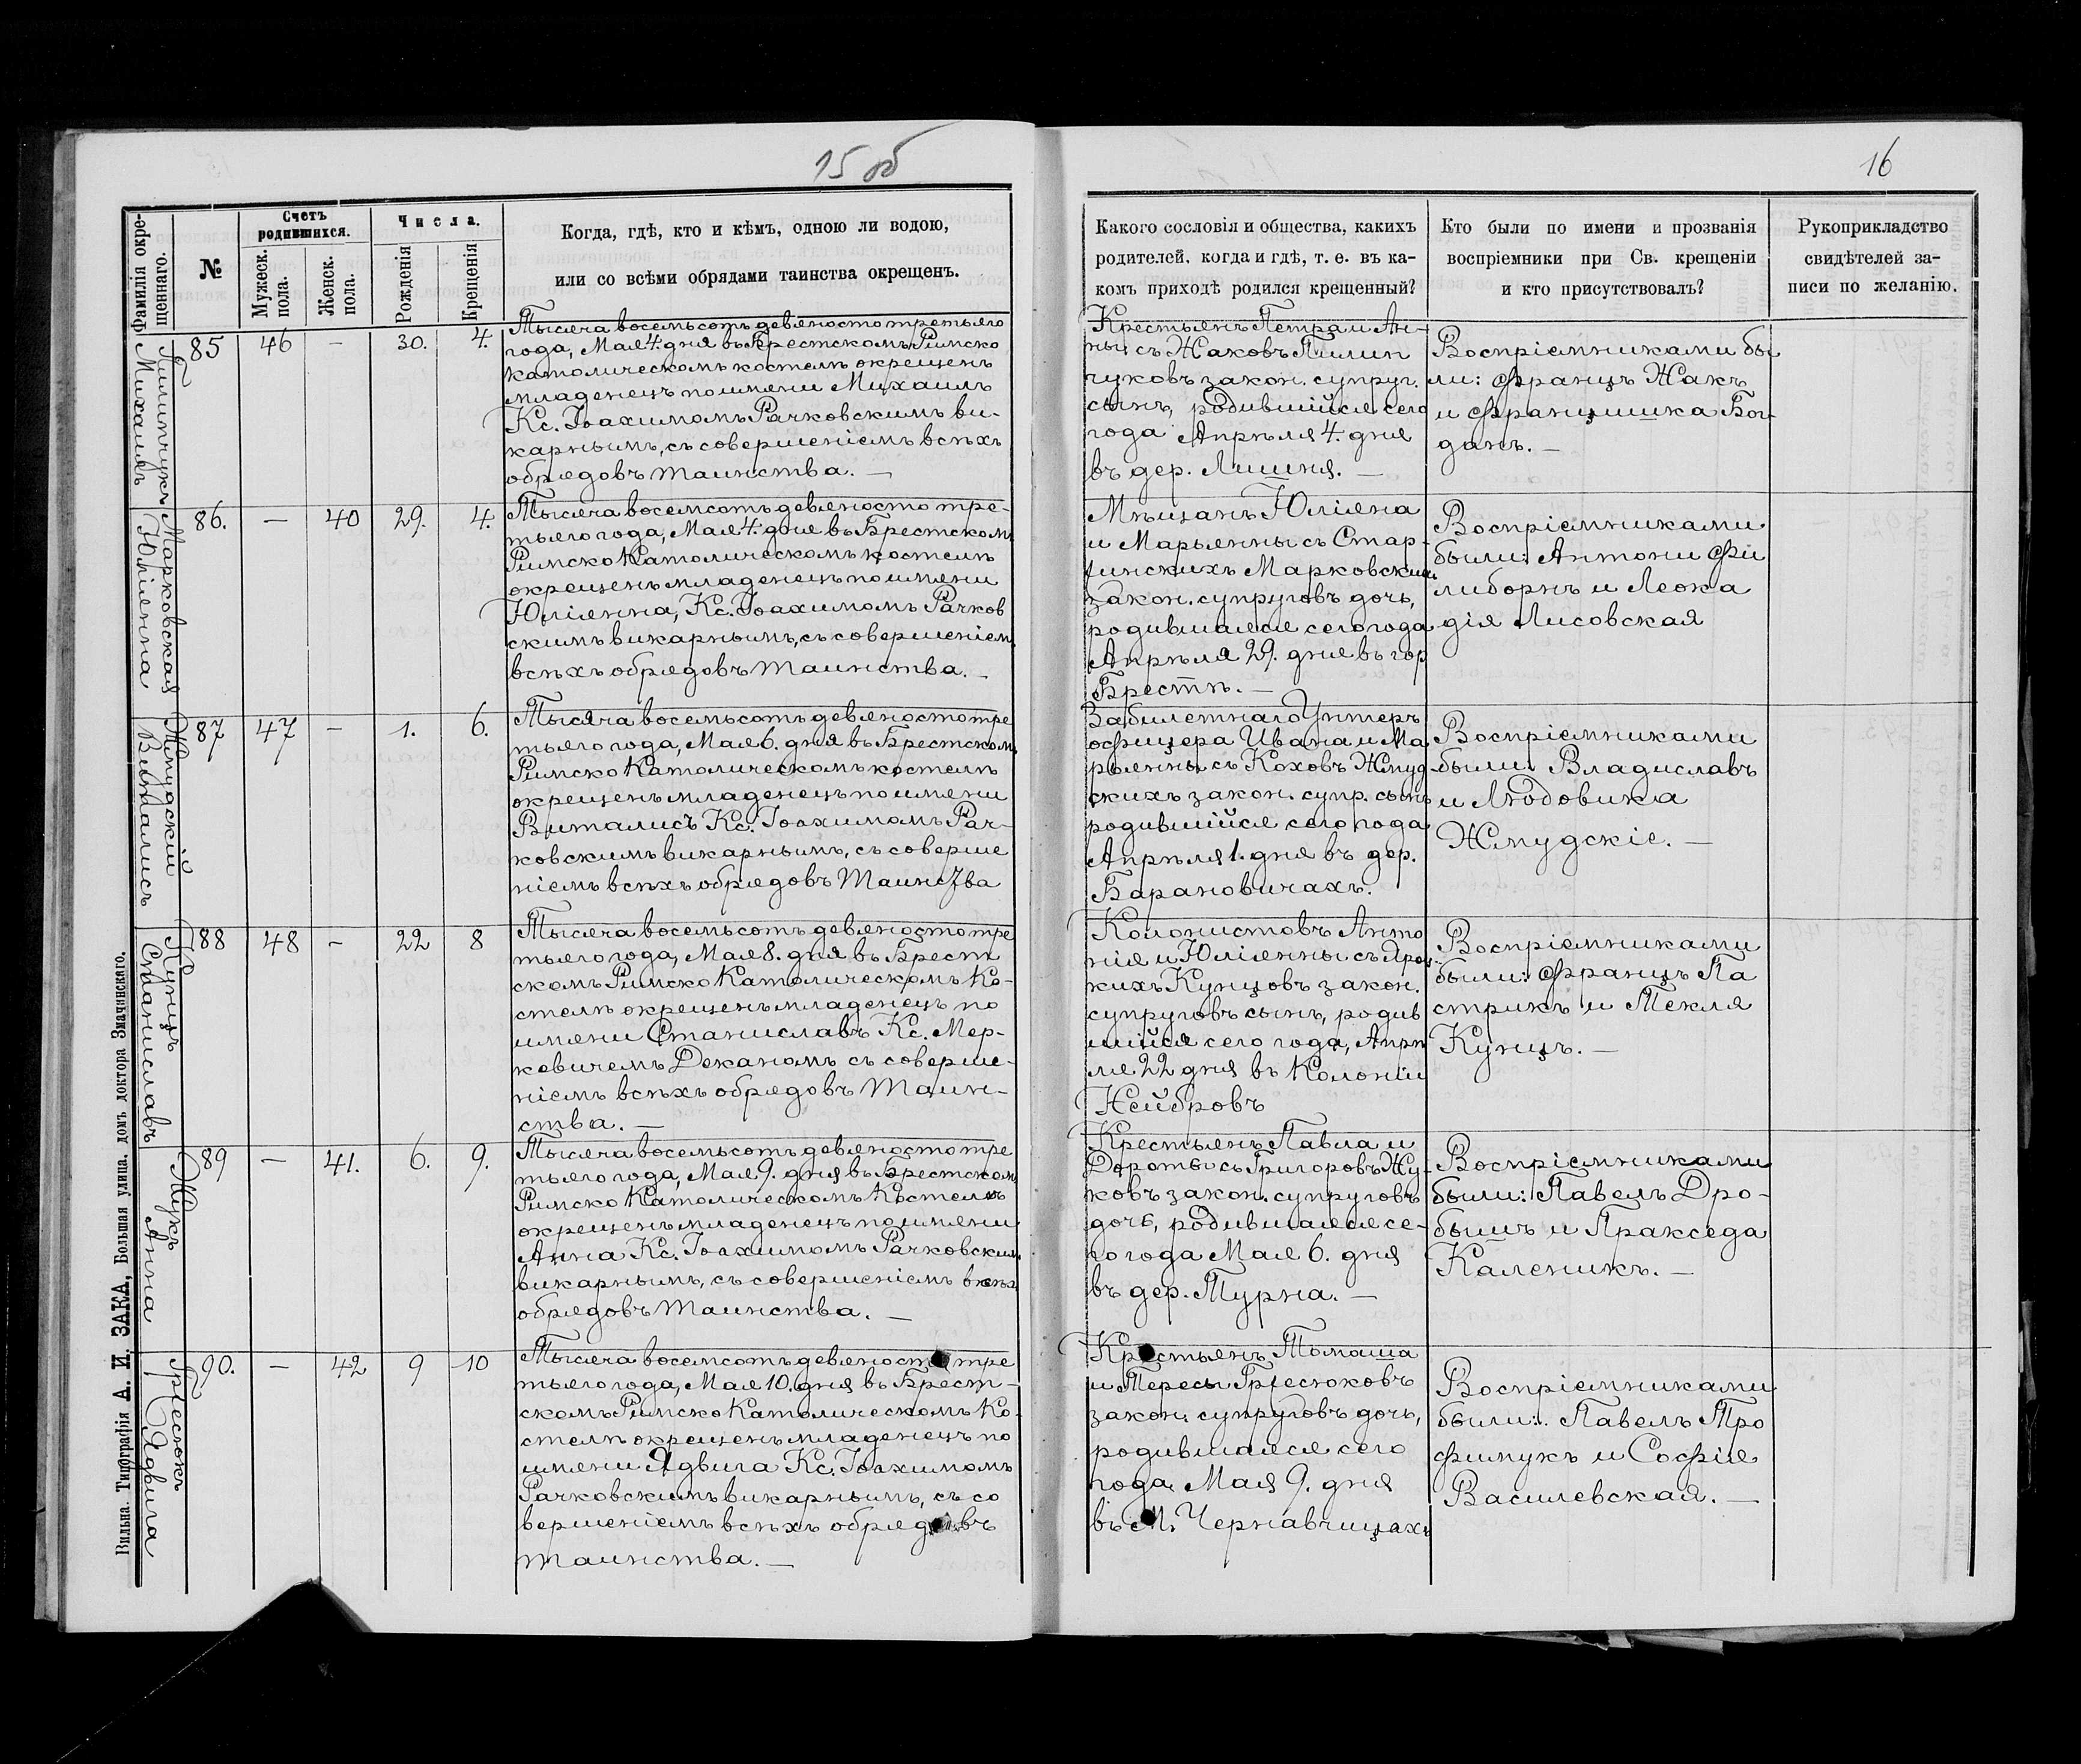 15 об
16
Фамилія окре-
щеннаго.
№
Счетъ
родившихся.
Мужеск.
пола.
Женск.
пола.
Числа.
Рожденія
Крещенія
Когда, гдѣ, кто и кѣмъ, одною ли водою,
или со всѣми обрядами таинства окрещенъ.
Какого сословія и общества, какихъ
родителей, когда и гдѣ, т. е. въ ка-
комъ приходѣ родился крещенный?
Кто были по имени и прозванія
воспріемники при Св. крещеніи
и кто присутствовалъ?
Рукоприкладство
свидѣтелей за-
писи по желанію.
Пилипчукъ
Михаилъ
85 46 — 30. 4.
Тысяча восемьсотъ девяносто третьяго
года, Мая 4. дня въ Брестскомъ Римско
Католическомъ костелѣ окрещенъ
младенецъ по имени Михаилъ
Кс. Іоахимомъ Рачковскимъ ви-
карнымъ, съ совершеніемъ всѣхъ
обрядовъ таинства. —
Крестьянъ Петра и Ан-
ны съ Жаковъ Пилип
чуковъ закон. супруг.
сынъ, родившійся сего
года Апрѣля 4. дня
въ дер. Лишня. —
Воспріемниками бы
ли: Францъ Жакъ
и Францишка Бог-
данъ. —
Марковская
Юліянна
86. — 40 29. 4.
Тысяча восемсотъ девяносто тре-
тьяго года, Мая 4. дня въ Брестскомъ
Римско Католическомъ костелѣ
окрещенъ младенецъ по имени
Юліянна, Кс. Іоахимомъ Рачков
скимъ викарнымъ, съ совершеніем
всѣхъ обрядовъ таинства. —
Мѣщанъ Юліяна
и Марьянны съ Стар-
жинскихъ Марковских
закон. супруговъ дочь,
родившаяся сего года
Апрѣля 29. дня въ гор
Брестѣ. —
Воспріемниками
были: Антони Фи
либорнъ и Леока
дія Лисовская
Жмудскій
Виталисъ
87 47 — 1. 6.
Тысяча восемьсотъ девяносто тре
тьяго года, Мая 6. дня въ Брестском
Римско Католическомъ костелѣ
окрещенъ младенецъ по имени
Виталисъ Кс. Іоахимомъ Рач-
ковскимъ викарнымъ, съ соверше
ніемъ всѣхъ обрядовъ таинства
Забилетнаго Унтеръ
офицера Ивана и Ма
рьянны съ Коховъ Жмуд
скихъ закон. супр. сынъ
родившійся сего года
Апрѣля 1. дня въ дер.
Барановичахъ.
Воспріемниками
были Владиславъ
и Людовика
Жмудскіе. —
Кунцъ
Станиславъ
88 48 — 22 8
Тысяча восемьсотъ девяносто тре
тьяго года, Мая 8. дня въ Брест
скомъ Римско Католическомъ Ко-
стелѣ окрещенъ младенецъ по
имени Станиславъ Кс. Мер-
кевичемъ Деканомъ съ соверше-
ніемъ всѣхъ обрядовъ таин-
ства. —
Колонистовъ Анто
нія и Юліянны съ
кихъ Кунцовъ закон.
супруговъ сынъ, родив
шійся сего года, Апрѣ
ля 22 дня въ Колоніи
Нейбровъ
Воспріемниками
были: Францъ Па
стрикъ и Текля
Кунцъ. —
Жукъ
Анна
89 — 41. 6. 9.
Тысяча восемьсотъ девяносто тре
тьяго года, Мая 9. дня въ Брестском
Римско Католическомъ Костелѣ
окрещенъ младенецъ по имени
Анна Кс. Іоахимомъ Рачковским
викарнымъ, съ совершеніемъ всѣхъ
обрядовъ таинства. —
Крестьянъ Павла и
Дороты съ Григоровъ Жу-
ковъ закон. супруговъ
дочь, родившаяся се-
го года Мая 6. дня
въ дер. Турна. —
Воспріемниками
были: Павелъ Дро-
бышъ и Пракседа
Каленикъ. —
Гріесюкъ
Ядвига
90. — 42 9 10
Тысяча восемсотъ девяносто тре
тьяго года, Мая 10. дня въ Брест-
скомъ Римско Католическомъ Ко-
стелѣ окрещенъ младенецъ по
имени Ядвига Кс. Іоахимомъ
Рачковскимъ викарнымъ, съ со
вершеніемъ всѣхъ обрядовъ
таинства. —
Крестьянъ Томаша
и Тересы Гріесюковъ
закон. супруговъ дочь,
родившаяся сего
года Мая 9. дня
въ М. Чернавчицахъ
Воспріемниками
были: Павелъ Тро
фимукъ и Софія
Василевская. —
Вильна. Типографія А. И. ЗАКА, Большая улица, домъ доктора Змачинскаго.